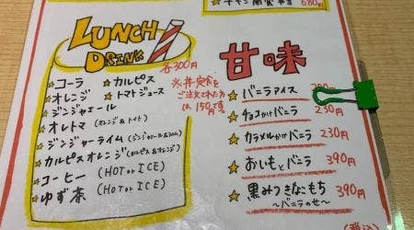 680円
LUNCH
DRINK
各300円
コーラ
カルピス
オレンジ
トマトジュース
ジンジャエール
オレトマ(オレンジ&トマト)
ジンジャーライム
カルピスオレンジ(カルピス&オレンジ)
コーヒー(HOT or ICE)
ゆず茶(HOT or ICE)
※丼、定食を
ご注文された方
は、150円
甘味
バニラアイス
バニラ 230円
カラメルかけバニラ 230円
おいもとバニラ 390円
黒みつきなこもち 390円
〜バニラのせ〜
(税込)